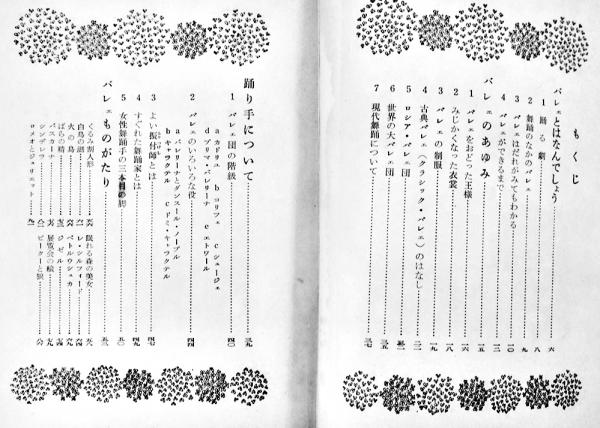 もくじ
バレエとはなんでしょう……六
1 踊る劇……八
2 舞踊のなかのバレエ……九
3 バレエはだれがみてもわかる……一〇
4 バレエができるまで……一三
バレエのあゆみ……一五
1 バレエをおどった王様……一六
2 みじかくなった衣裳……一八
3 バレエの制服……一九
4 古典バレエ（クラシック・バレエ）のはなし……二一
5 ロシア・バレエ団
6 世界の大バレエ団……三五
7 現代舞踊について……三七
踊り手について……三九
1 バレエ団の階級……四〇
aカドリユ bコリフェ cシュージェ
dプリマ・バレリーナ eエトワール
2 バレエのいろいろな役……四四
aバレリーナとダンスール・ノーブル
bキャラクテル cドミ・キャラクテル
3 よい振付師とは……四七
4 すぐれた舞踊家とは……四九
5 女性舞踊手の三本目の脚……五〇
バレエものがたり……五三
くるみ割人形 眠れる森の美女
白鳥の湖 レ・シルフィード
火の鳥 ペトルウシュカ
ばらの精 ジゼル
パスカーナ 展覧会の絵
シンデレラ ピーターと狼
ロメオとジュリエット